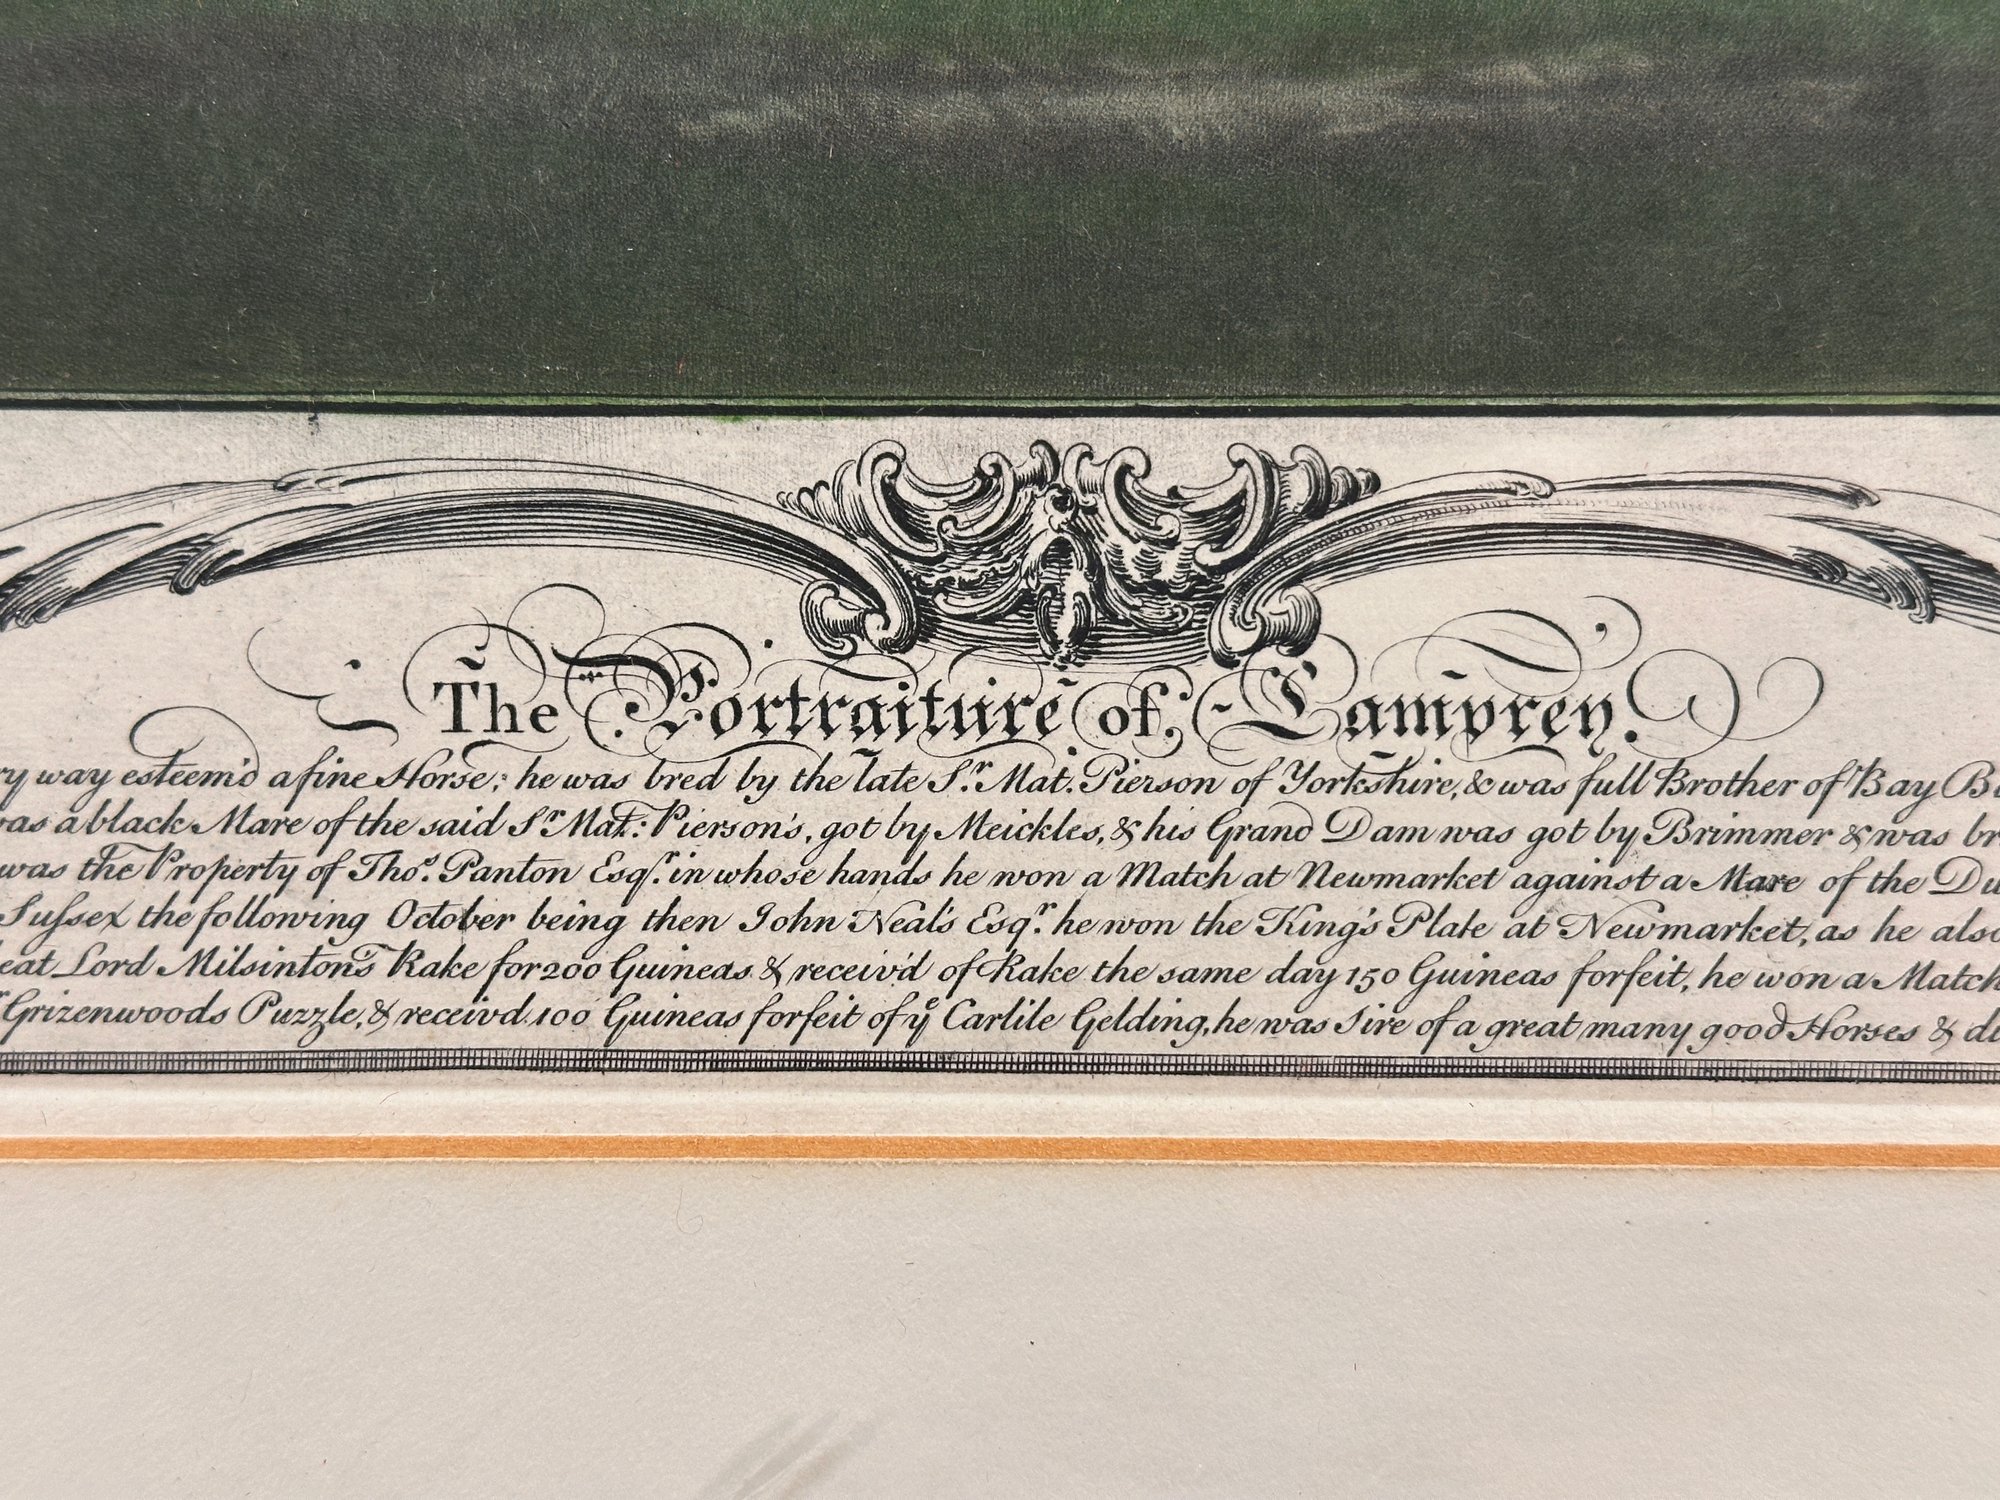 The Portraiture of Lamprey.
way esteem'd a fine Horse; he was bred by the late Sr. Mat. Pierson of Yorkshire, & was full Brother of Bay
a black Mare of the said Sr. Mat: Pierson's, got by Meickles, & his Grand Dam was got by Brimmer & was
was the Property of Thos. Panton Esqr. in whose hands he won a Match at Newmarket against a Mare of the
Sussex the following October being then John Neal's Esqr. he won the King's Plate at Newmarket, as he also
Lord Milsinton's Rake for 200 Guineas & receiv'd of Rake the same day 150 Guineas forfeit, he won a Match
Grizenwoods Puzzle, & receivd 100 Guineas forfeit of ye Carlile Gelding, he was Sire of a great many good Horses &